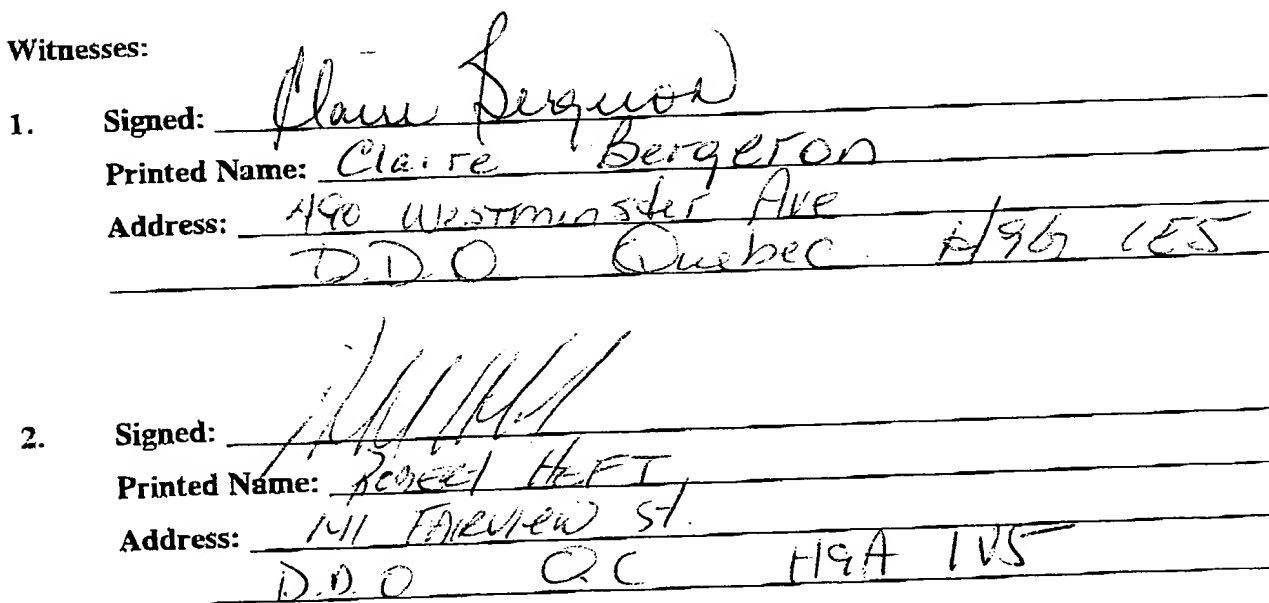 Witnesses:
1. Signed: Claire Bergeron
Printed Name: Claire Bergeron
Address: 490 Westminster Ave
D.D.O Quebec H9G 1E5
2. Signed:
Printed Name: Robert HEFT
Address: 141 FAIRVIEW St.
D.D.O QC H9A 1V5